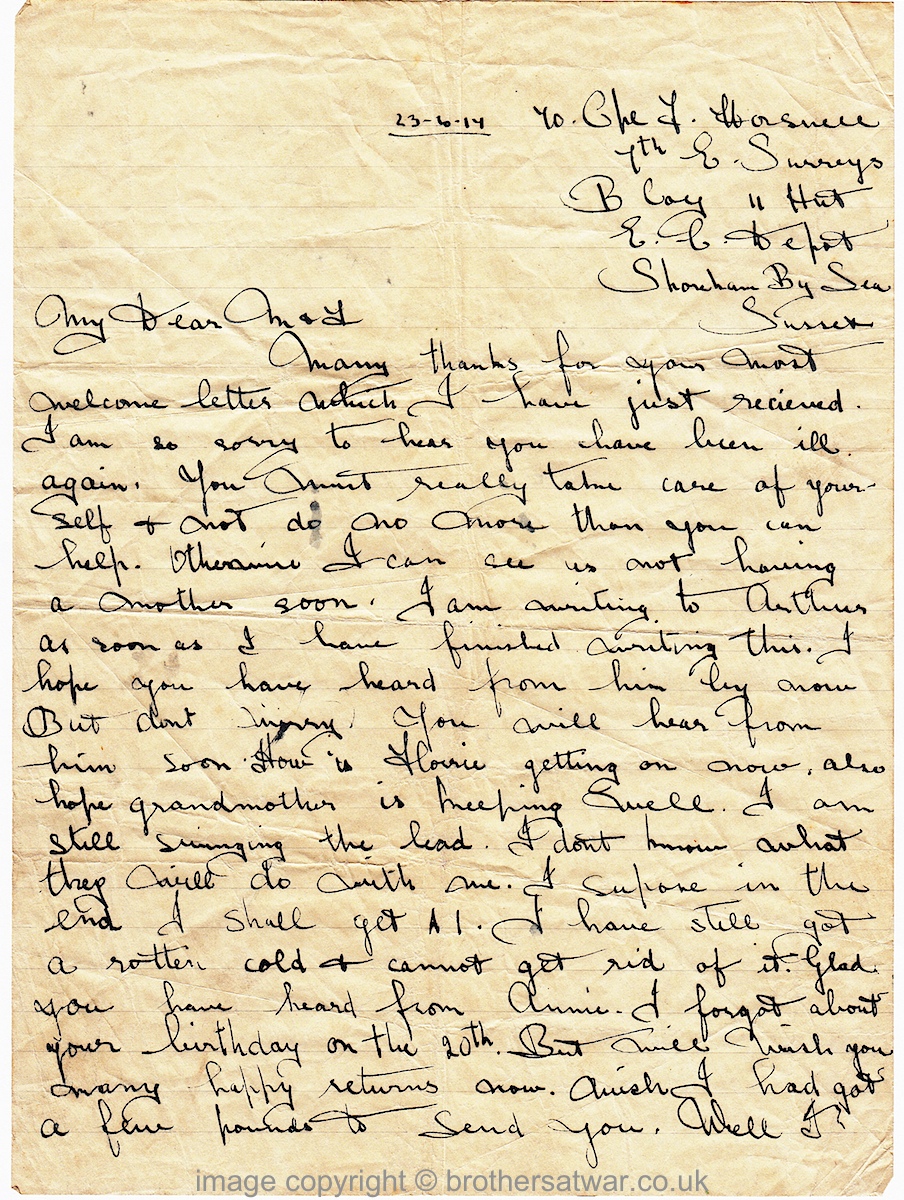 23-6-17 70. Cpl F. Horsnell
7th E. Surreys
B Coy 11 Hut
E. C. Depot
Shoreham By Sea
Sussex
My Dear M & F
Many thanks for your most
welcome letter which I have just recieved.
I am so sorry to hear you have been ill
again. You must really take care of your-
self & not do no more than you can
help. Otherwise I can see us not having
a mother soon. I am writing to Arthur
as soon as I have finished writing this. I
hope you have heard from him by now
But dont worry. You will hear from
him soon. How is Florrie getting on now, also
hope grandmother is keeping well. I am
still swinging the lead. I dont know what
they will do with me. I supose in the
end I shall get A1. I have still got
a rotten cold & cannot get rid of it. Glad
you have heard from Annie. I forgot about
your birthday on the 20th. But will wish you
many happy returns now. wish I had got
a few pounds to send you. Well I
image copyright © brothersatwar.co.uk